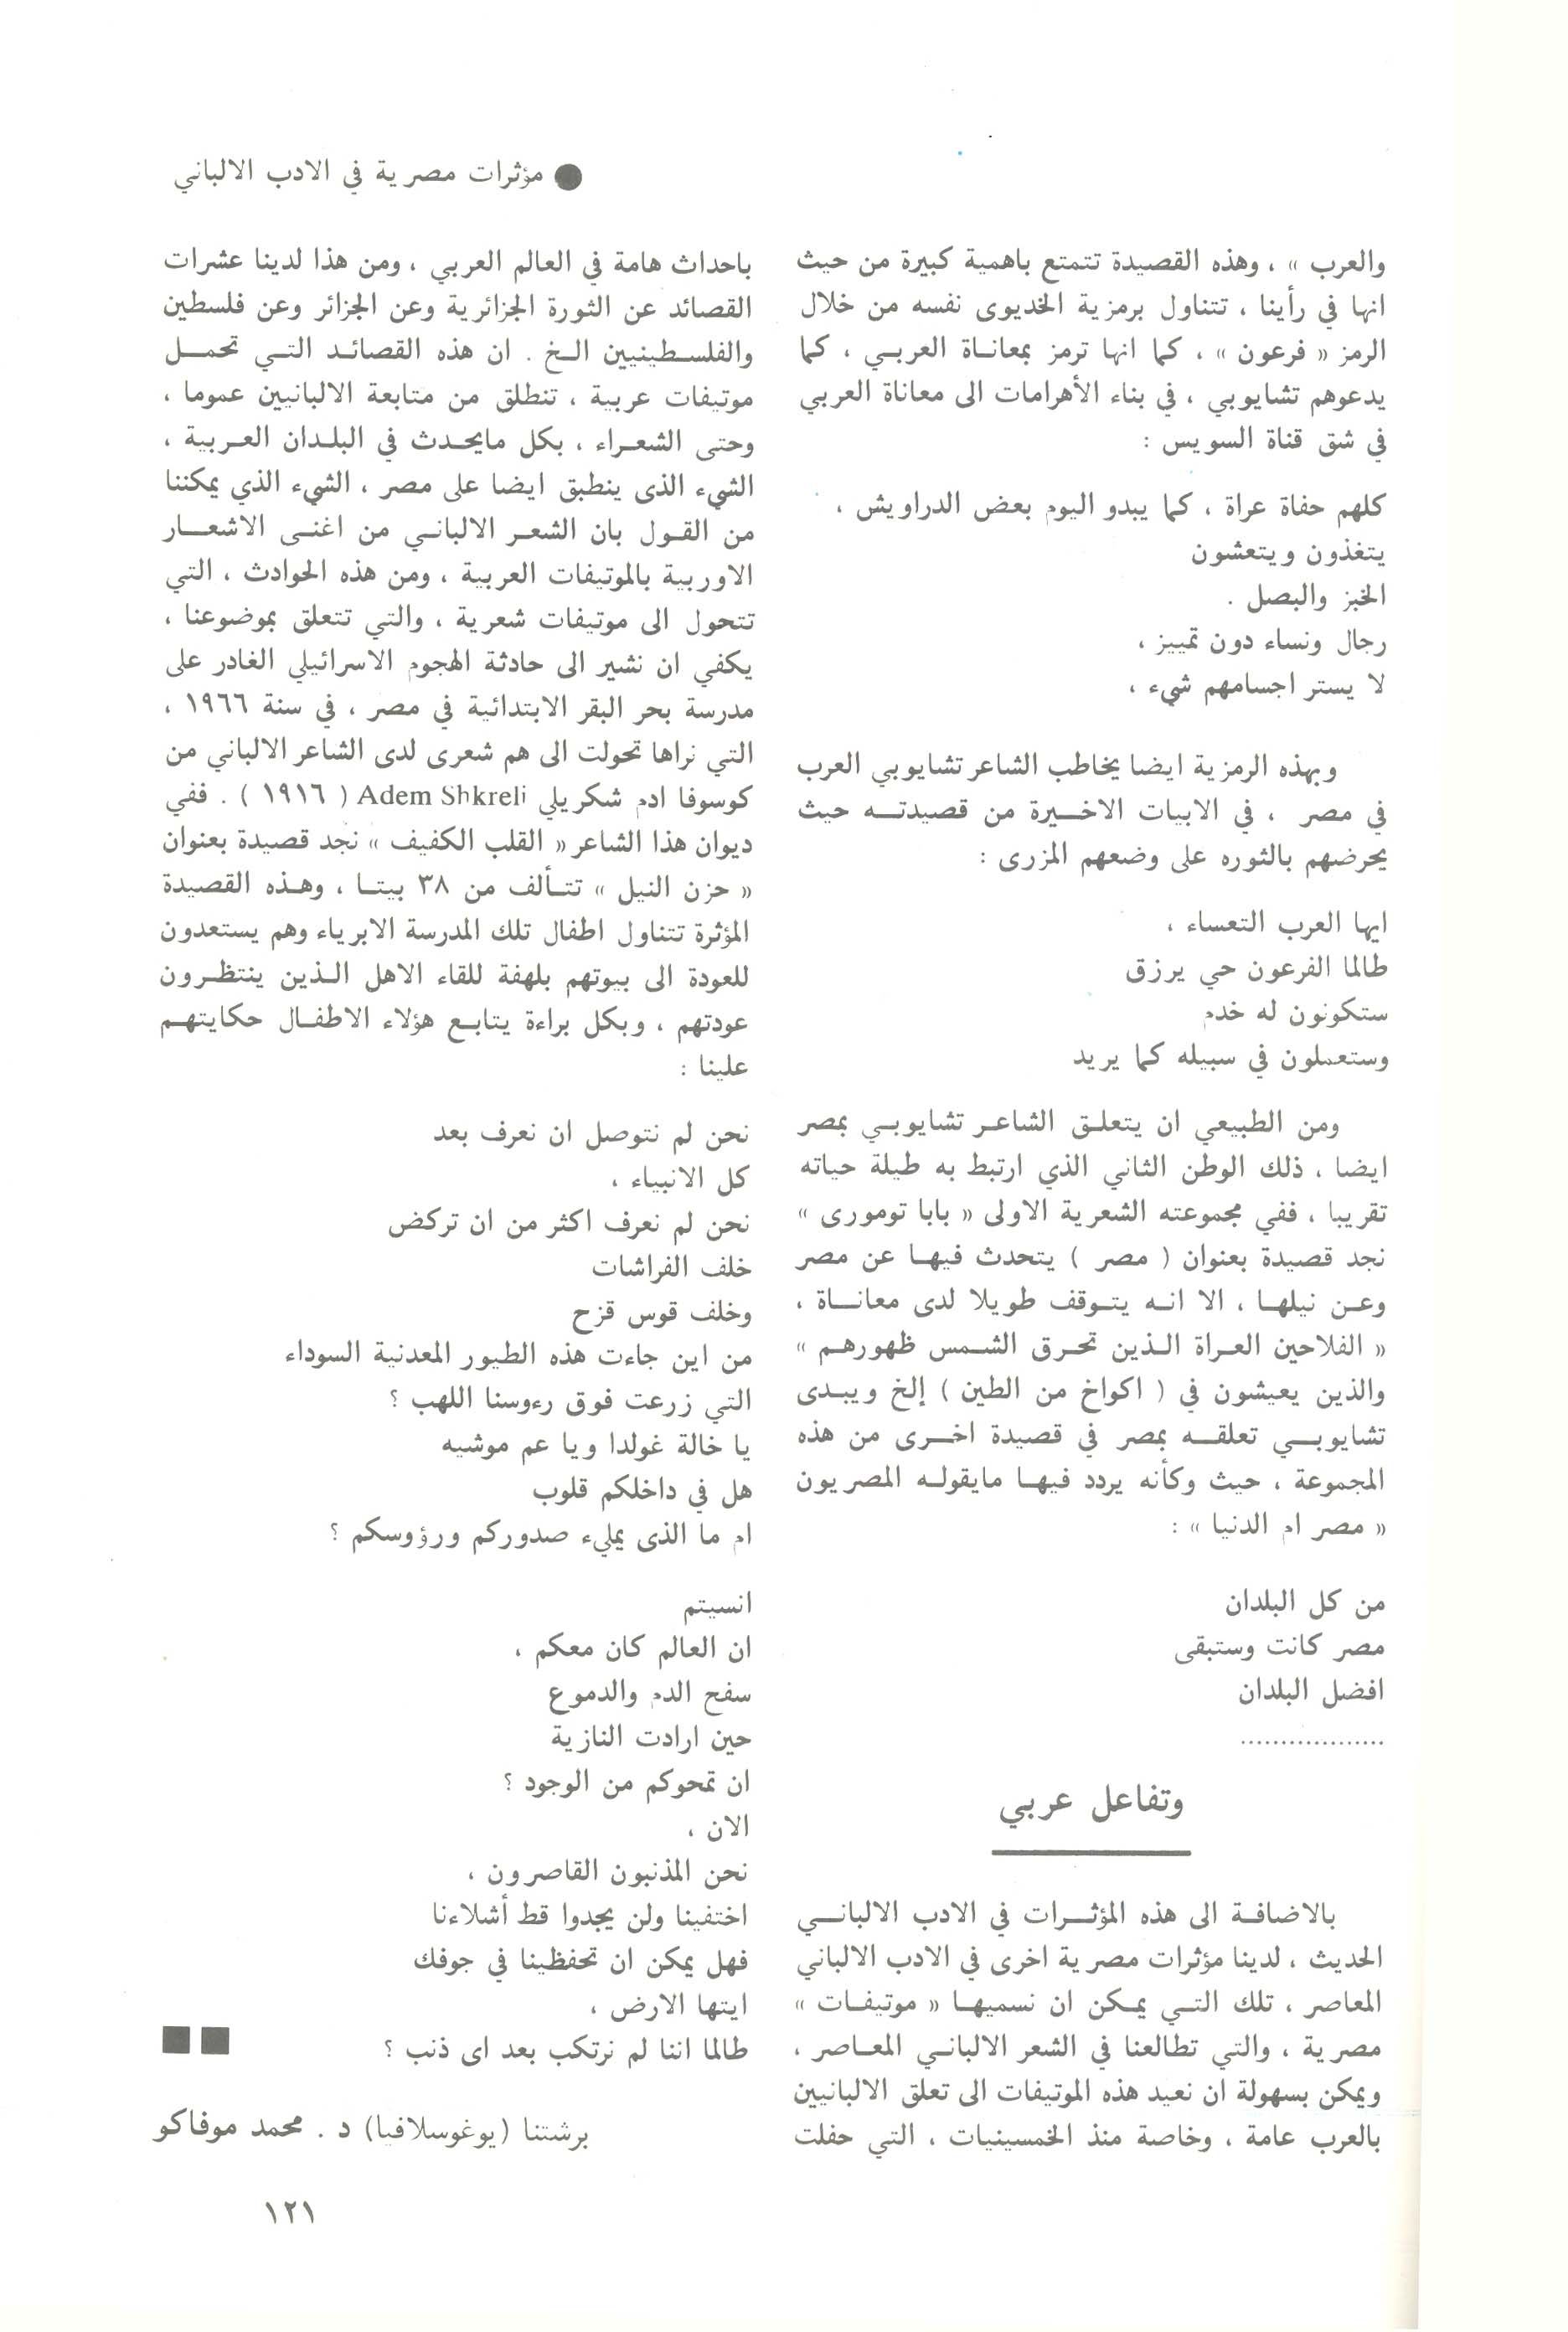 ● مؤثرات مصرية في الادب الالباني
والعرب » ، وهذه القصيدة تتمتع باهمية كبيرة من حيث
انها في رأينا ، تتناول برمزية الخديوى نفسه من خلال
الرمز « فرعون » ، كما انها ترمز بمعاناة العربي ، كما
يدعوهم تشايوبي ، في بناء الأهرامات الى معاناة العربي
في شق قناة السويس :
كلهم حفاة عراة ، كما يبدو اليوم بعض الدراويش ،
يتغذون ويتعشون
الخبز والبصل .
رجال ونساء دون تمييز ،
لا يستر اجسامهم شيء ،
وبهذه الرمزية ايضا يخاطب الشاعر تشايوبي العرب
في مصر ، في الابيات الاخيرة من قصيدته حيث
يحرضهم بالثوره على وضعهم المزرى :
ايها العرب التعساء ،
طالما الفرعون حي يرزق
ستكونون له خدم
وستعملون في سبيله كما يريد
ومن الطبيعي ان يتعلق الشاعر تشايوبي بمصر
ايضا ، ذلك الوطن الثاني الذي ارتبط به طيلة حياته
تقريبا ، ففي مجموعته الشعرية الاولى « بابا تومورى »
نجد قصيدة بعنوان ( مصر ) يتحدث فيها عن مصر
وعن نيلها ، الا انه يتوقف طويلا لدى معاناة ،
« الفلاحين العراة الذين تحرق الشمس ظهورهم »
والذين يعيشون في ( اكواخ من الطين ) إلخ ويبدى
تشايوبي تعلقه بمصر في قصيدة اخرى من هذه
المجموعة ، حيث وكأنه يردد فيها مايقوله المصريون
« مصر ام الدنيا » :
من كل البلدان
مصر كانت وستبقى
افضل البلدان
..................
وتفاعل عربي
بالاضافة الى هذه المؤثرات في الادب الالباني
الحديث ، لدينا مؤثرات مصرية اخرى في الادب الالباني
المعاصر ، تلك التي يمكن ان نسميها « موتيفات »
مصرية ، والتي تطالعنا في الشعر الالباني المعاصر ،
ويمكن بسهولة ان نعيد هذه الموتيفات الى تعلق الالبانيين
بالعرب عامة ، وخاصة منذ الخمسينيات ، التي حفلت
باحداث هامة في العالم العربي ، ومن هذا لدينا عشرات
القصائد عن الثورة الجزائرية وعن الجزائر وعن فلسطين
والفلسطينيين الخ . ان هذه القصائد التي تحمل
موتيفات عربية ، تنطلق من متابعة الالبانيين عموما ،
وحتى الشعراء ، بكل مايحدث في البلدان العربية ،
الشيء الذى ينطبق ايضا على مصر ، الشيء الذي يمكننا
من القول بان الشعر الالباني من اغنى الاشعار
الاوربية بالموتيفات العربية ، ومن هذه الحوادث ، التي
تتحول الى موتيفات شعرية ، والتي تتعلق بموضوعنا ،
يكفي ان نشير الى حادثة الهجوم الاسرائيلي الغادر على
مدرسة بحر البقر الابتدائية في مصر ، في سنة ١٩٦٦ ،
التي نراها تحولت الى هم شعرى لدى الشاعر الالباني من
كوسوفا ادم شكريلي Adem Shkreli ( ١٩١٦ ) . ففي
ديوان هذا الشاعر « القلب الكفيف » نجد قصيدة بعنوان
« حزن النيل » تتألف من ٣٨ بيتا ، وهذه القصيدة
المؤثرة تتناول اطفال تلك المدرسة الابرياء وهم يستعدون
للعودة الى بيوتهم بلهفة للقاء الاهل الذين ينتظرون
عودتهم ، وبكل براءة يتابع هؤلاء الاطفال حكايتهم
علينا :
نحن لم نتوصل ان نعرف بعد
كل الانبياء ،
نحن لم نعرف اكثر من ان تركض
خلف الفراشات
وخلف قوس قزح
من اين جاءت هذه الطيور المعدنية السوداء
التي زرعت فوق رءوسنا اللهب ؟
يا خالة غولدا ويا عم موشيه
هل في داخلكم قلوب
ام ما الذى يمليء صدوركم ورؤوسكم ؟
انسيتم
ان العالم كان معكم ،
سفح الدم والدموع
حين ارادت النازية
ان تمحوكم من الوجود ؟
الان ،
نحن المذنبون القاصرون ،
اختفينا ولن يجدوا قط أشلاءنا
فهل يمكن ان تحفظينا في جوفك
ايتها الارض ،
طالما اننا لم نرتكب بعد اى ذنب ؟ ■■
برشتنا (يوغوسلافيا) د . محمد موفاكو
١٢١